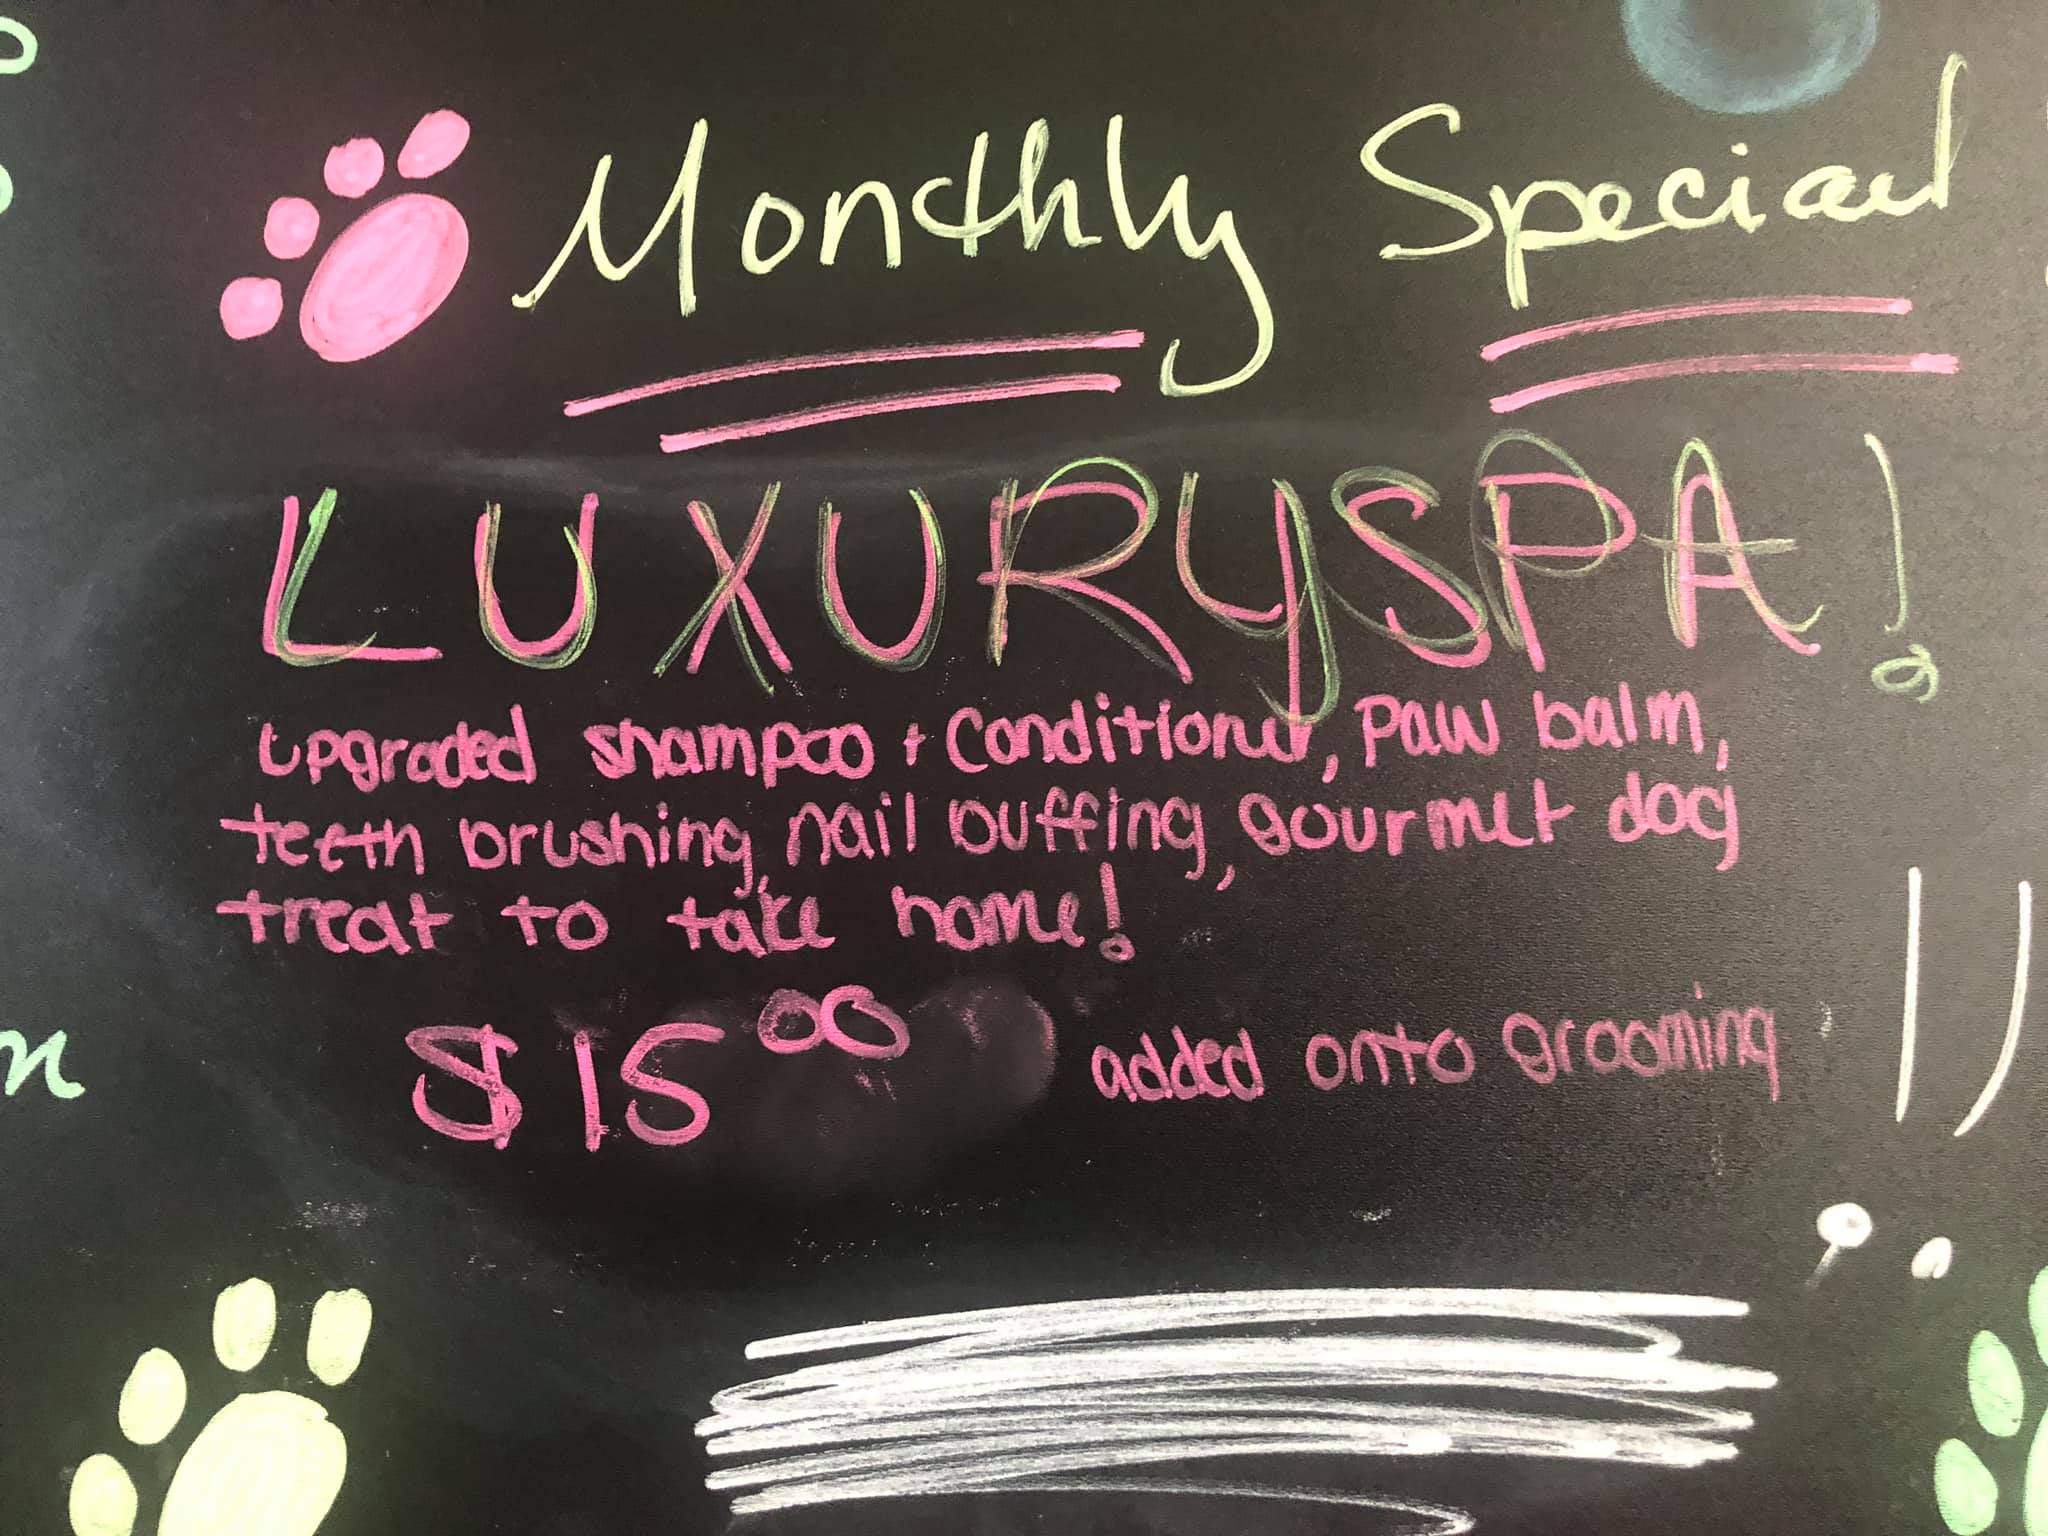 Monthly Special
LUXURYSPA!
upgraded shampoo + Conditioner, paw balm,
teeth brushing, nail buffing, gourmet dog
treat to take home!
$15⁰⁰ added onto grooming